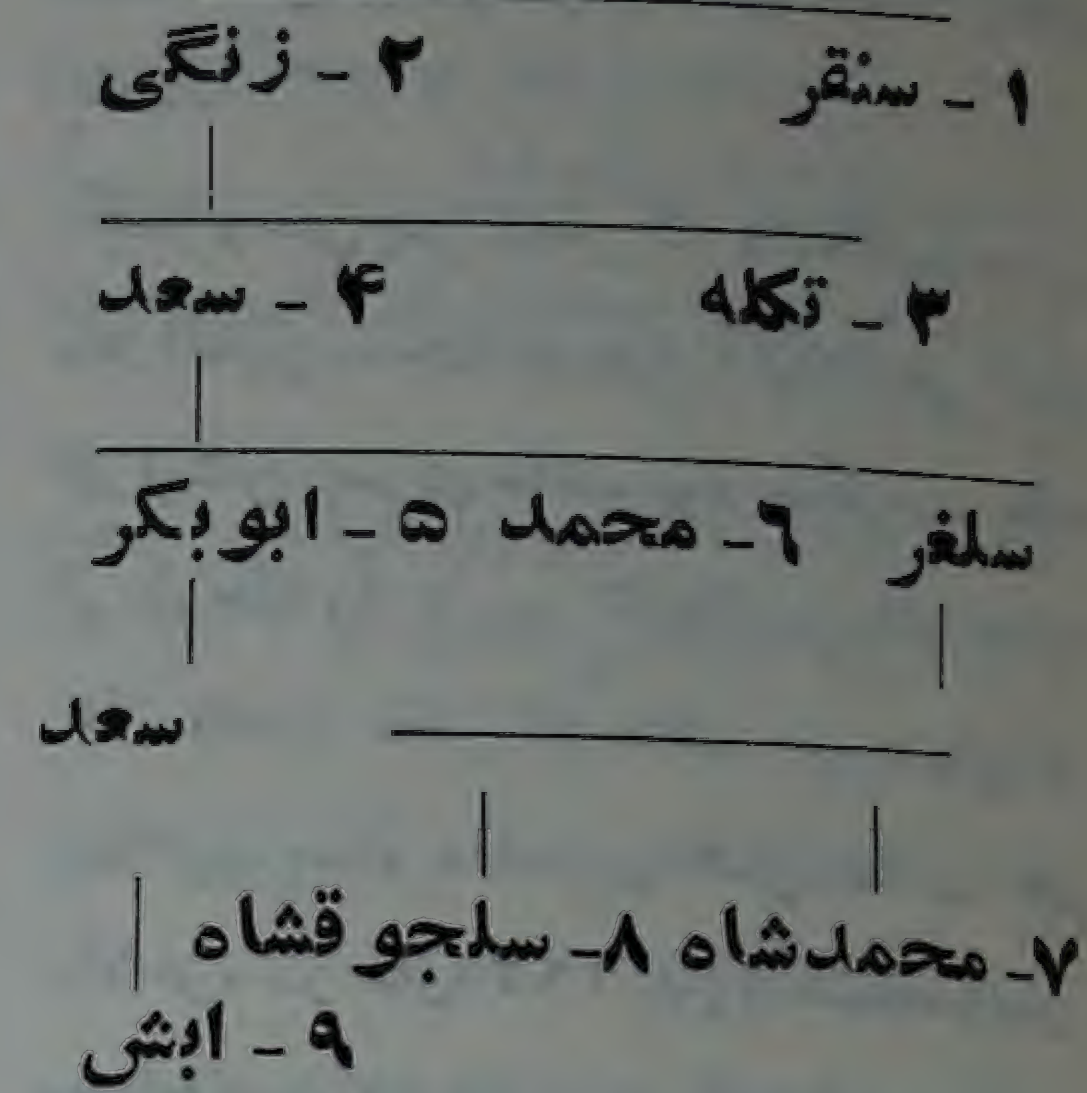 ۱ - سنقر ۲ - زنگی
۳ - تکله ۴ - سعد
سلغر ۶ - محمد ۵ - ابوبکر
سعد
۷ - محمدشاه ۸ - سلجوقشاه
۹ - ابش